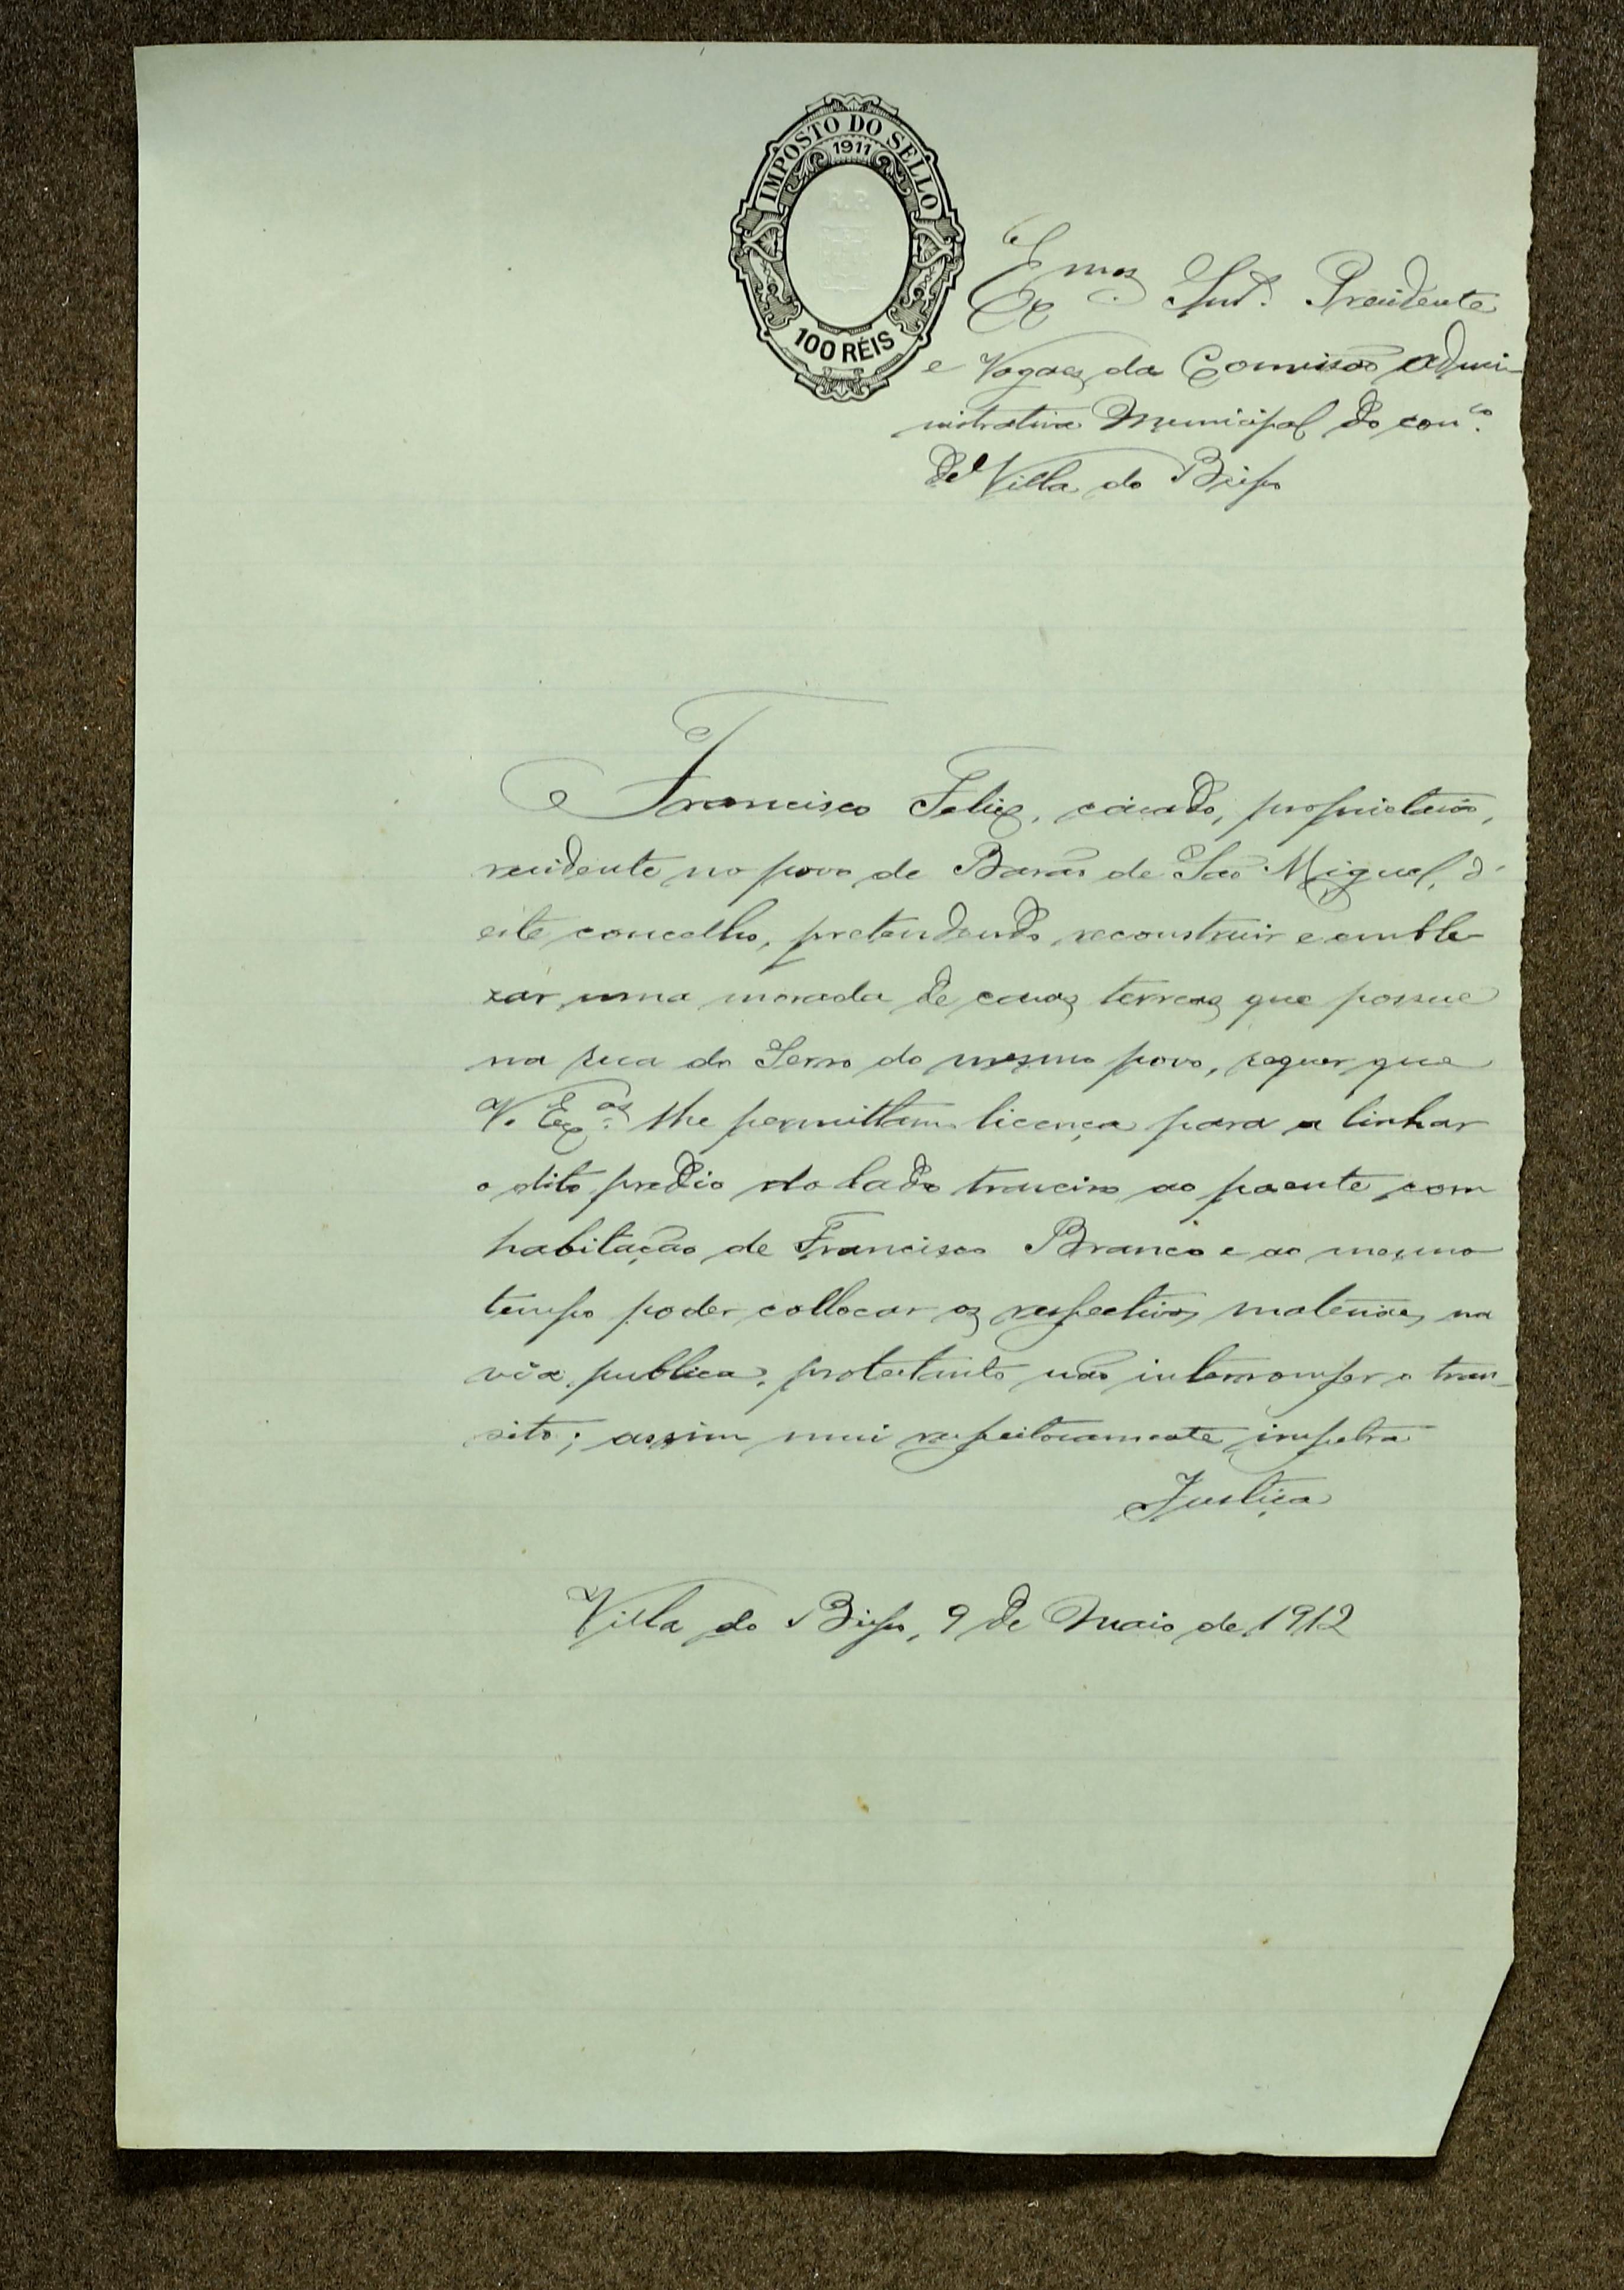 IMPOSTO DO SELLO
1911
R. P.
100 RÉIS
Exmos Snrs. Presidente
e Vogaes da Comissão Admi-
nistrativa Municipal do conco.
de Villa do Bispo
Francisco Felix, casado, proprietario,
residente no povo de Barão de São Miguel, d'
este concelho, pretendendo reconstruir e emble-
zar uma morada de casas terreas que possue
na rua do Serro do mesmo povo, requer que
V. Exas. lhe permittam licença para a linhar
o dito predio do lado traseiro ao poente com
habitação de Francisco Branco e ao mesmo
tempo poder collocar os respectivos materiaes na
via publica, protestanto não interromper o tran-
sito; assim mui respeitosamente impetra
Justiça
Villa do Bispo, 9 de Maio de 1912